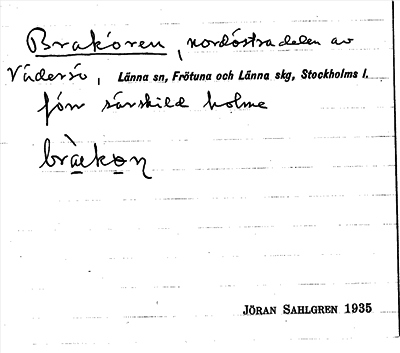 Brakören, nordöstra delen av
Vädersö, Länna sn, Frötuna och Länna skg, Stockholms l.
förr särskild holme
JÖRAN SAHLGREN 1935